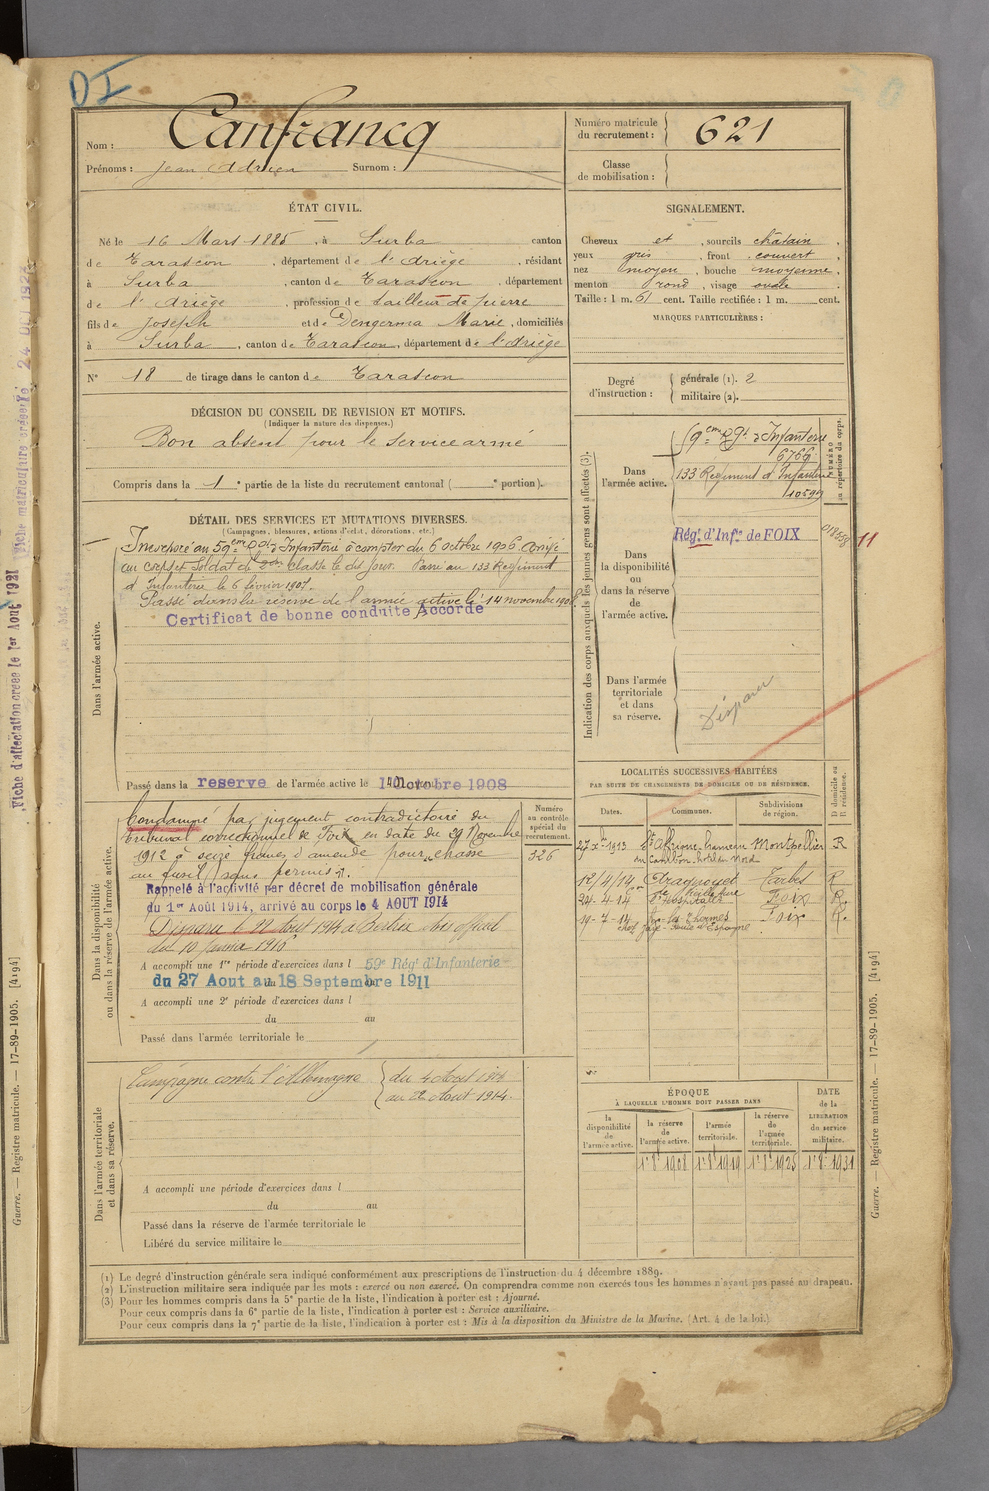 DI
Nom : Canfrancq
Prénoms : Jean Adrien Surnom :
Numéro matricule du recrutement : 621
Classe de mobilisation :
ÉTAT CIVIL.
Né le 16 Mars 1885, à Surba canton
de Tarascon, département de l'Ariège, résidant
à Surba, canton de Tarascon, département
de l'Ariège, profession de tailleur de pierre
fils de Joseph et de Dengerma Marie, domiciliés
à Surba, canton de Tarascon, département de l'Ariège
N° 18 de tirage dans le canton de Tarascon
SIGNALEMENT.
Cheveux et, sourcils châtain,
yeux gris, front couvert,
nez moyen, bouche moyenne,
menton rond, visage ovale
Taille : 1 m. 61 cent. Taille rectifiée : 1 m. cent.
MARQUES PARTICULIÈRES :
Degré d'instruction : générale (1). 2
militaire (2).
DÉCISION DU CONSEIL DE REVISION ET MOTIFS.
(Indiquer la nature des dispenses.)
Bon absent pour le service armé
Compris dans la 1e partie de la liste du recrutement cantonal ( e portion).
DÉTAIL DES SERVICES ET MUTATIONS DIVERSES.
(Campagnes, blessures, actions d'éclat, décorations, etc.)
Dans l'armée active.
Incorporé au 59ème Rgt d'Infanterie à compter du 6 octobre 1906. Arrivé
au corps et Soldat de 2me classe le dit jour. Passé au 133 Régiment
d'Infanterie le 6 février 1907.
Passé dans la réserve de l'armée active le 1 novembre 1908
Certificat de bonne conduite Accordé
Passé dans la reserve de l'armée active le 1 Octobre 1908
Indication des corps auxquels les jeunes gens sont affectés (3).
NUMÉRO au répertoire du corps.
Dans l'armée active.
59ème Rgt d'Infanterie
6766
133 Régiment d'Infanterie
10599
Dans la disponibilité ou dans la réserve de l'armée active.
Régt d'Infie de FOIX
11
Dans l'armée territoriale et dans sa réserve.
Disparu
Dans la disponibilité ou dans la réserve de l'armée active.
Condamné par jugement contradictoire du
tribunal correctionnel de Foix en date du 29 Novembre
1912 à seize francs d'amende pour chasse
au fusil sans permis.
Rappelé à l'activité par décret de mobilisation générale
du 1er Août 1914, arrivé au corps le 4 AOUT 1914
Disparu le 22 Aout 1914 à Bertrix Avis officiel
du 10 Janvier 1916
A accompli une 1re période d'exercices dans l 59e Régt d'Infanterie
du 27 Aout au 18 Septembre 1911
A accompli une 2e période d'exercices dans l
du au
Passé dans l'armée territoriale le
Numéro au contrôle spécial du recrutement.
326
LOCALITÉS SUCCESSIVES HABITÉES
PAR SUITE DE CHANGEMENTS DE DOMICILE OU DE RÉSIDENCE.
Dates. Communes. Subdivisions de région. D domicile ou R résidence.
27 Xbre 1913 St Affrique hameau Montpellier R
12/4/14 Aragnouet Tarbes R
24-4-14 l'Hospitalet Foix R.
19-7-14 Foix R.
Dans l'armée territoriale et dans sa réserve.
Campagne contre l'Allemagne du 4 Aout 1914
au 22 Aout 1914.
A accompli une période d'exercices dans l
du au
Passé dans la réserve de l'armée territoriale le
Libéré du service militaire le
ÉPOQUE
À LAQUELLE L'HOMME DOIT PASSER DANS
DATE de la LIBÉRATION du service militaire.
la disponibilité de l'armée active. la réserve de l'armée active. l'armée territoriale. la réserve de l'armée territoriale.
1er 8bre 1908 1er 8bre 1919 1er 8bre 1925 1er 8bre 1931
(1) Le degré d'instruction générale sera indiqué conformément aux prescriptions de l'instruction du 4 décembre 1889.
(2) L'instruction militaire sera indiquée par les mots : exercé ou non exercé. On comprendra comme non exercés tous les hommes n'ayant pas passé au drapeau.
(3) Pour les hommes compris dans la 5e partie de la liste, l'indication à porter est : Ajourné.
Pour ceux compris dans la 6e partie de la liste, l'indication à porter est : Service auxiliaire.
Pour ceux compris dans la 7e partie de la liste, l'indication à porter est : Mis à la disposition du Ministre de la Marine. (Art. 4 de la loi.)
Guerre. — Registre matricule. — 17-89-1905. [4194]
Guerre. — Registre matricule. — 17-89-1905. [4194]
Fiche d'affectation créée le 1er Août 1921